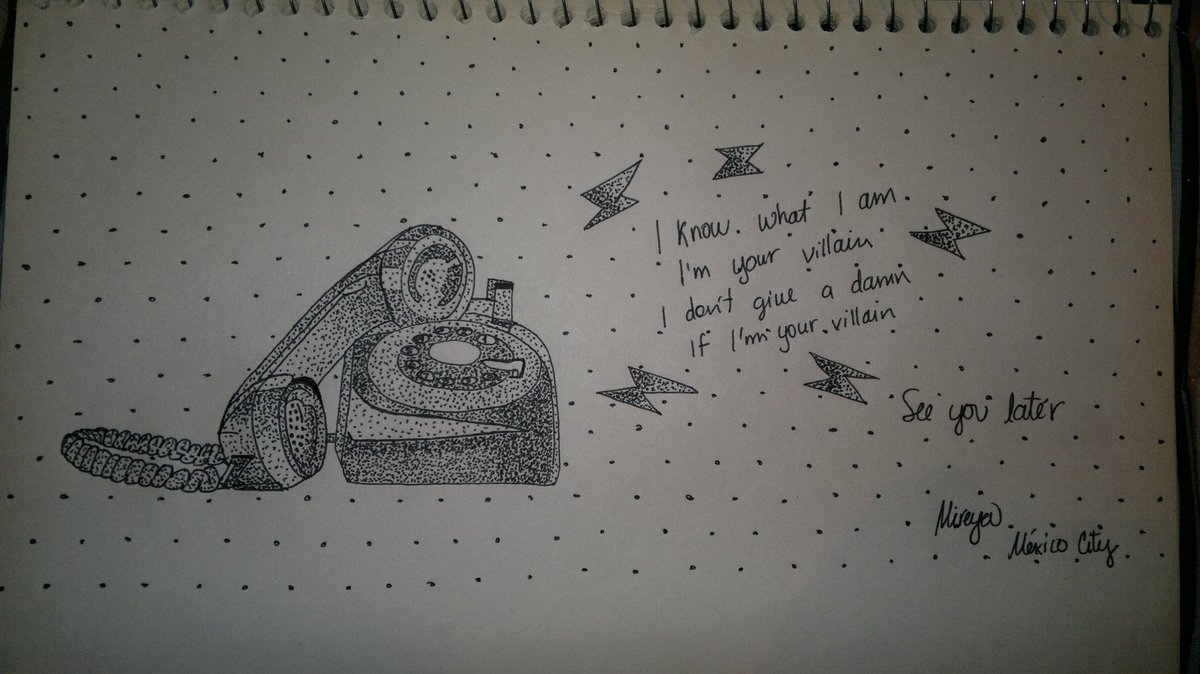 I know what I am
I'm your villain
I don't give a damn
if I'm your villain
See you later
Mireya
México City